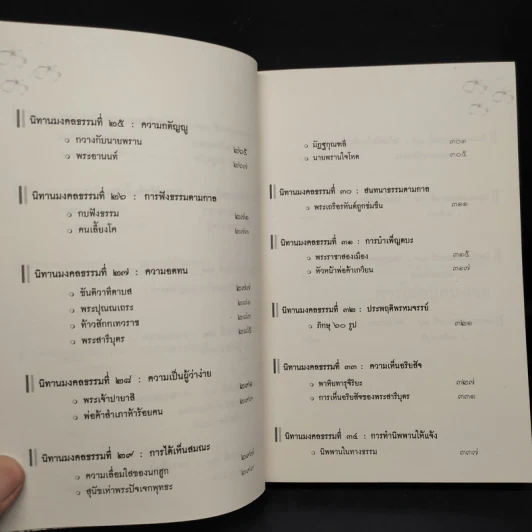 นิทานมงคลธรรมที่ ๒๕ : ความกตัญญู
๐ กวางกับนายพราน ๒๖๕
๐ พระอานนท์ ๒๖๗
นิทานมงคลธรรมที่ ๒๖ : การฟังธรรมตามกาล
๐ กบฟังธรรม ๒๗๑
๐ คนเลี้ยงโค ๒๗๓
นิทานมงคลธรรมที่ ๒๗ : ความอดทน
๐ ขันติวาทีดาบส ๒๗๗
๐ พระปุณณเถระ ๒๘๑
๐ ท้าวสักกเทวราช ๒๘๓
๐ พระสารีบุตร ๒๘๕
นิทานมงคลธรรมที่ ๒๘ : ความเป็นผู้ว่าง่าย
๐ พระเจ้าปายาสิ ๒๙๑
๐ พ่อค้าสำเภาห้าร้อยคน
นิทานมงคลธรรมที่ ๒๙ : การได้เห็นสมณะ
๐ ความเลื่อมใสของนกฮูก ๒๙๗
๐ สุนัขเห่าพระปัจเจกพุทธะ ๒๙๙
๐ มัฏฐกุณฑลี ๓๐๑
๐ นายพรานใจโหด ๓๐๕
นิทานมงคลธรรมที่ ๓๐ : สนทนาธรรมตามกาล
๐ พระเถรีอรหันต์ถูกข่มขืน ๓๑๑
นิทานมงคลธรรมที่ ๓๑ : การบำเพ็ญตบะ
๐ พระราชาสองเมือง ๓๑๕
๐ หัวหน้าพ่อค้าเกวียน ๓๑๗
นิทานมงคลธรรมที่ ๓๒ : ประพฤติพรหมจรรย์
๐ ภิกษุ ๖๐ รูป ๓๒๑
นิทานมงคลธรรมที่ ๓๓ : ความเห็นอริยสัจ
๐ พาหิยทารุจีริยะ ๓๒๗
๐ การเห็นอริยสัจของพระสารีบุตร ๓๓๑
นิทานมงคลธรรมที่ ๓๔ : การทำนิพพานให้แจ้ง
๐ นิพพานในทางธรรม ๓๓๗